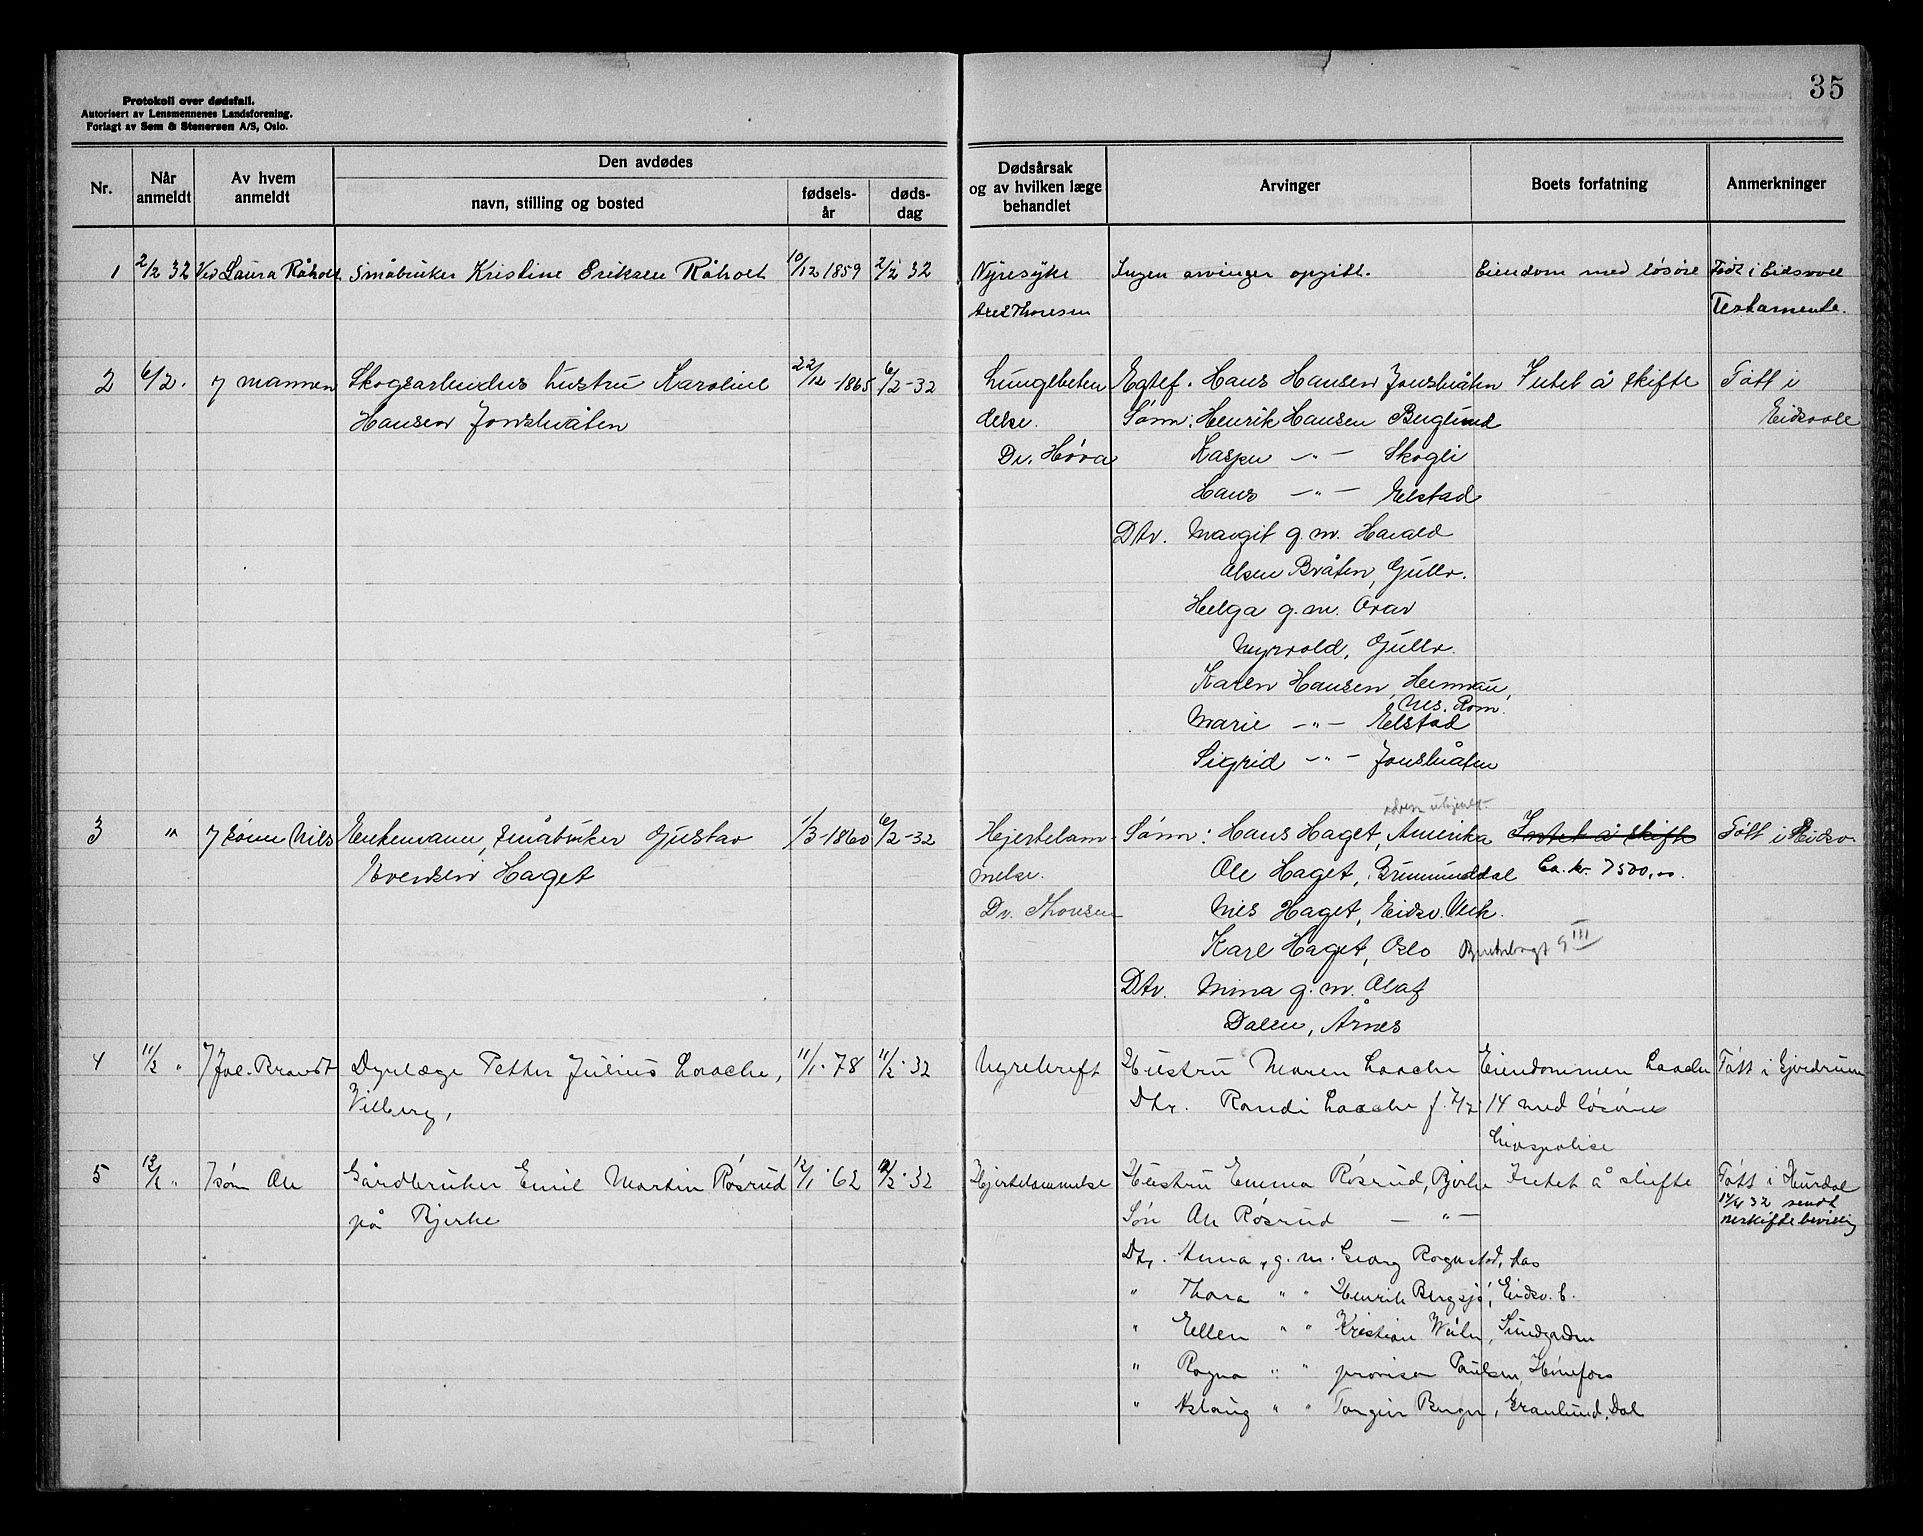 35
Protokoll over dødsfall.
Autorisert av Lensmennenes Landsforening.
Forlagt av Sem & Stenersen A/S, Oslo.
Nr.
Når anmeldt
Av hvem anmeldt
Den avdødes
navn, stilling og bosted
fødsels-år
døds-dag
Dødsårsak og av hvilken læge behandlet
Arvinger
Boets forfatning
Anmerkninger
1 2/2 32 Ved Laura Råholt Småbruker Kristine Eriksen Råholt 10/12 1859 2/2 32 Nyresyke Ingen arvinger opgitt. Eiendom med løsøre Født i Eidsvoll
Axel Thoresen Testamente.
2 6/2. v/ mannen Skogsarbeiders hustru Karoline 22/12-1865 6/2-32 Lungebeten Egtef. Hans Hansen Jonsbråten Intet å skifte Født i
Hansen Jonsbråten delse. Sønn: Henrik Hansen Berglund Eidsvoll
Dr. Høva Kasper -"- Skogli
Hans -"- Elstad
Dtr. Margit g.m. Harald
Olsen Bråten, Gullv.
Helga g.m. Orav
Myrvold, Gullv.
Karen Hansen, Herman,
Nes. Rom.
Marie -"- Elstad
Sigrid -"- Jonsbråten
adresse ubekjent
3 " v/ sønn Nils Enkemann, småbruker Gustav 1/3-1860 6/2-32 Hjertelam- Sønn: Hans Haget, Amerika Intet å skifte Født i Eidsv.
Evensen Haget melse. Ole Haget, Brumunddal Ca. kr. 7500,00.
Dr. Thoresen Nils Haget, Eidsv. Verk.
Karl Haget, Oslo 9 III
Dtr. Mina g.m. Olaf
Dalen, Årnes
4 11/2 " v/ Joh. Brandt Dyrlæge Petter Julius Laache, 11/1-78 11/2-32 Nyrekreft Hustru Maren Laache Eiendommen Laache Født i Gjerdrum
Vilberg, Dtr. Randi Laache f. 7/2 14 med løsøre
Livspolise
5 12/2 " v/ søn Ole Gårdbruker Emil Martin Røsrud 12/1-62 12/2-32 Hjertelammelse Hustru Emma Røsrud, Bjerke Intet å skifte Født i Hurdal
på Bjerke Søn Ole Røsrud -"- 12/4 32 sendt
uskiftebevillig
Dtr. Anna, g.m. Georg Rognstad, Aas
" Thora " " Henrik Bergsjø, Eidsv. b.
" Ellen " " Kristian Wiiler, Sundgaden
" Ragna " " provisor Paulsen, Hønefoss
" Aslaug " " Torgeir Berger, Granlund, Dal